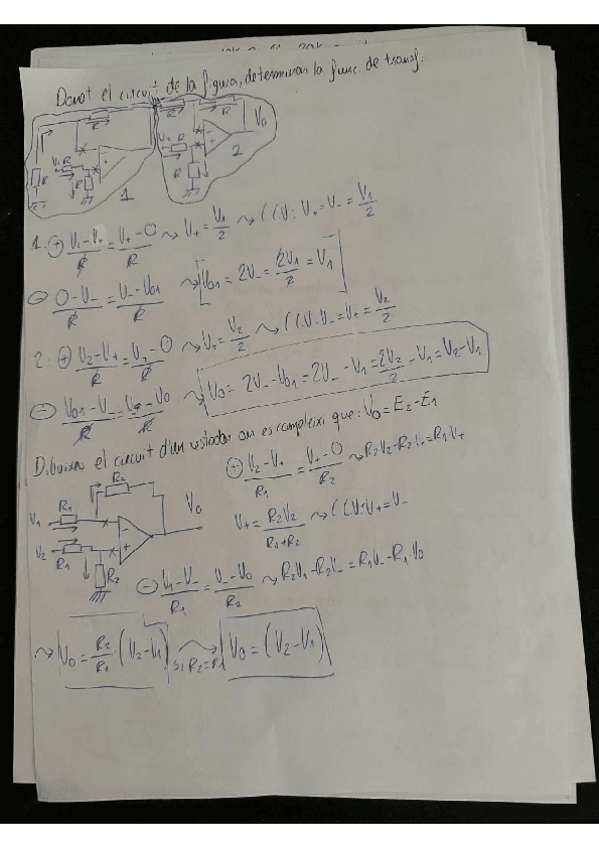 Donat el circuit de la figura, determinar la func. de transf.
R R R V0
V1 R V2 R
R R R
1 2
1. ⊕ V1-V+/R = V+-0/R ⤳ V+ = V1/2 ⤳ CCV: V+=V-= V1/2
⊖ 0-V-/R = V--V01/R ⤳ V01 = 2V- = 2V1/2 = V1
2. ⊕ V2-V+/R = V+-0/R ⤳ V+ = V2/2 ⤳ CCV: V-=V+= V2/2
⊖ V01-V-/R = V--V0/R ⤳ V0 = 2V--V01 = 2V--V1 = 2V2/2 - V1 = V2-V1
Dibuixa el circuit d'un restador on es compleixi que: V0 = E2-E1
R2 V0
V1 R1
V2 R1 R2
⊕ V2-V+/R1 = V+-0/R2 ⤳ R2V2-R2·V+=R1·V+
V+ = R2V2/R1+R2 ⤳ CCV: V+=V-
⊖ V1-V-/R1 = V--V0/R2 ⤳ R2V1-R2V- = R1V--R1V0
⤳ V0 = R2/R1 · (V2-V1) ⤳ si R2=R1 V0 = (V2-V1)